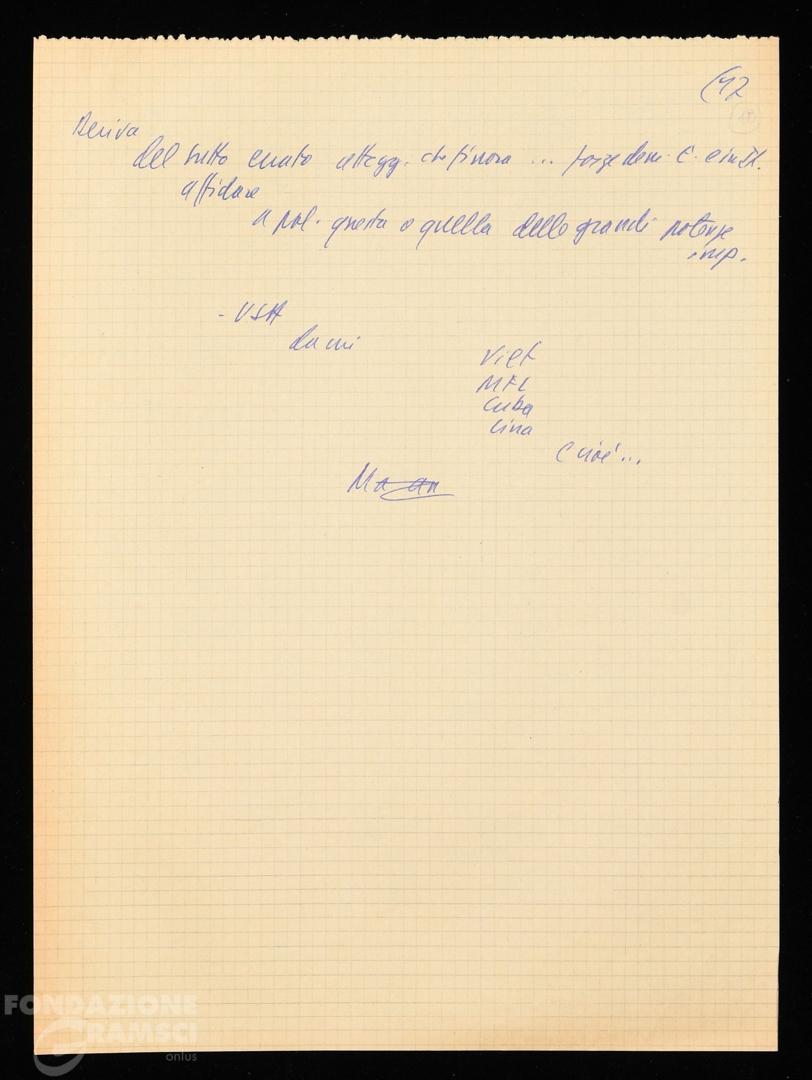 (17
Deriva
del tutto errato attegg. che finora ... forze dem. E. e in It.
affidare
a pol. questa o quella delle grandi potenze
imp.
- USA
da cui
Viet
MFL
Cuba
Cina
E cioè ...
Ma
FONDAZIONE
GRAMSCI
onlus